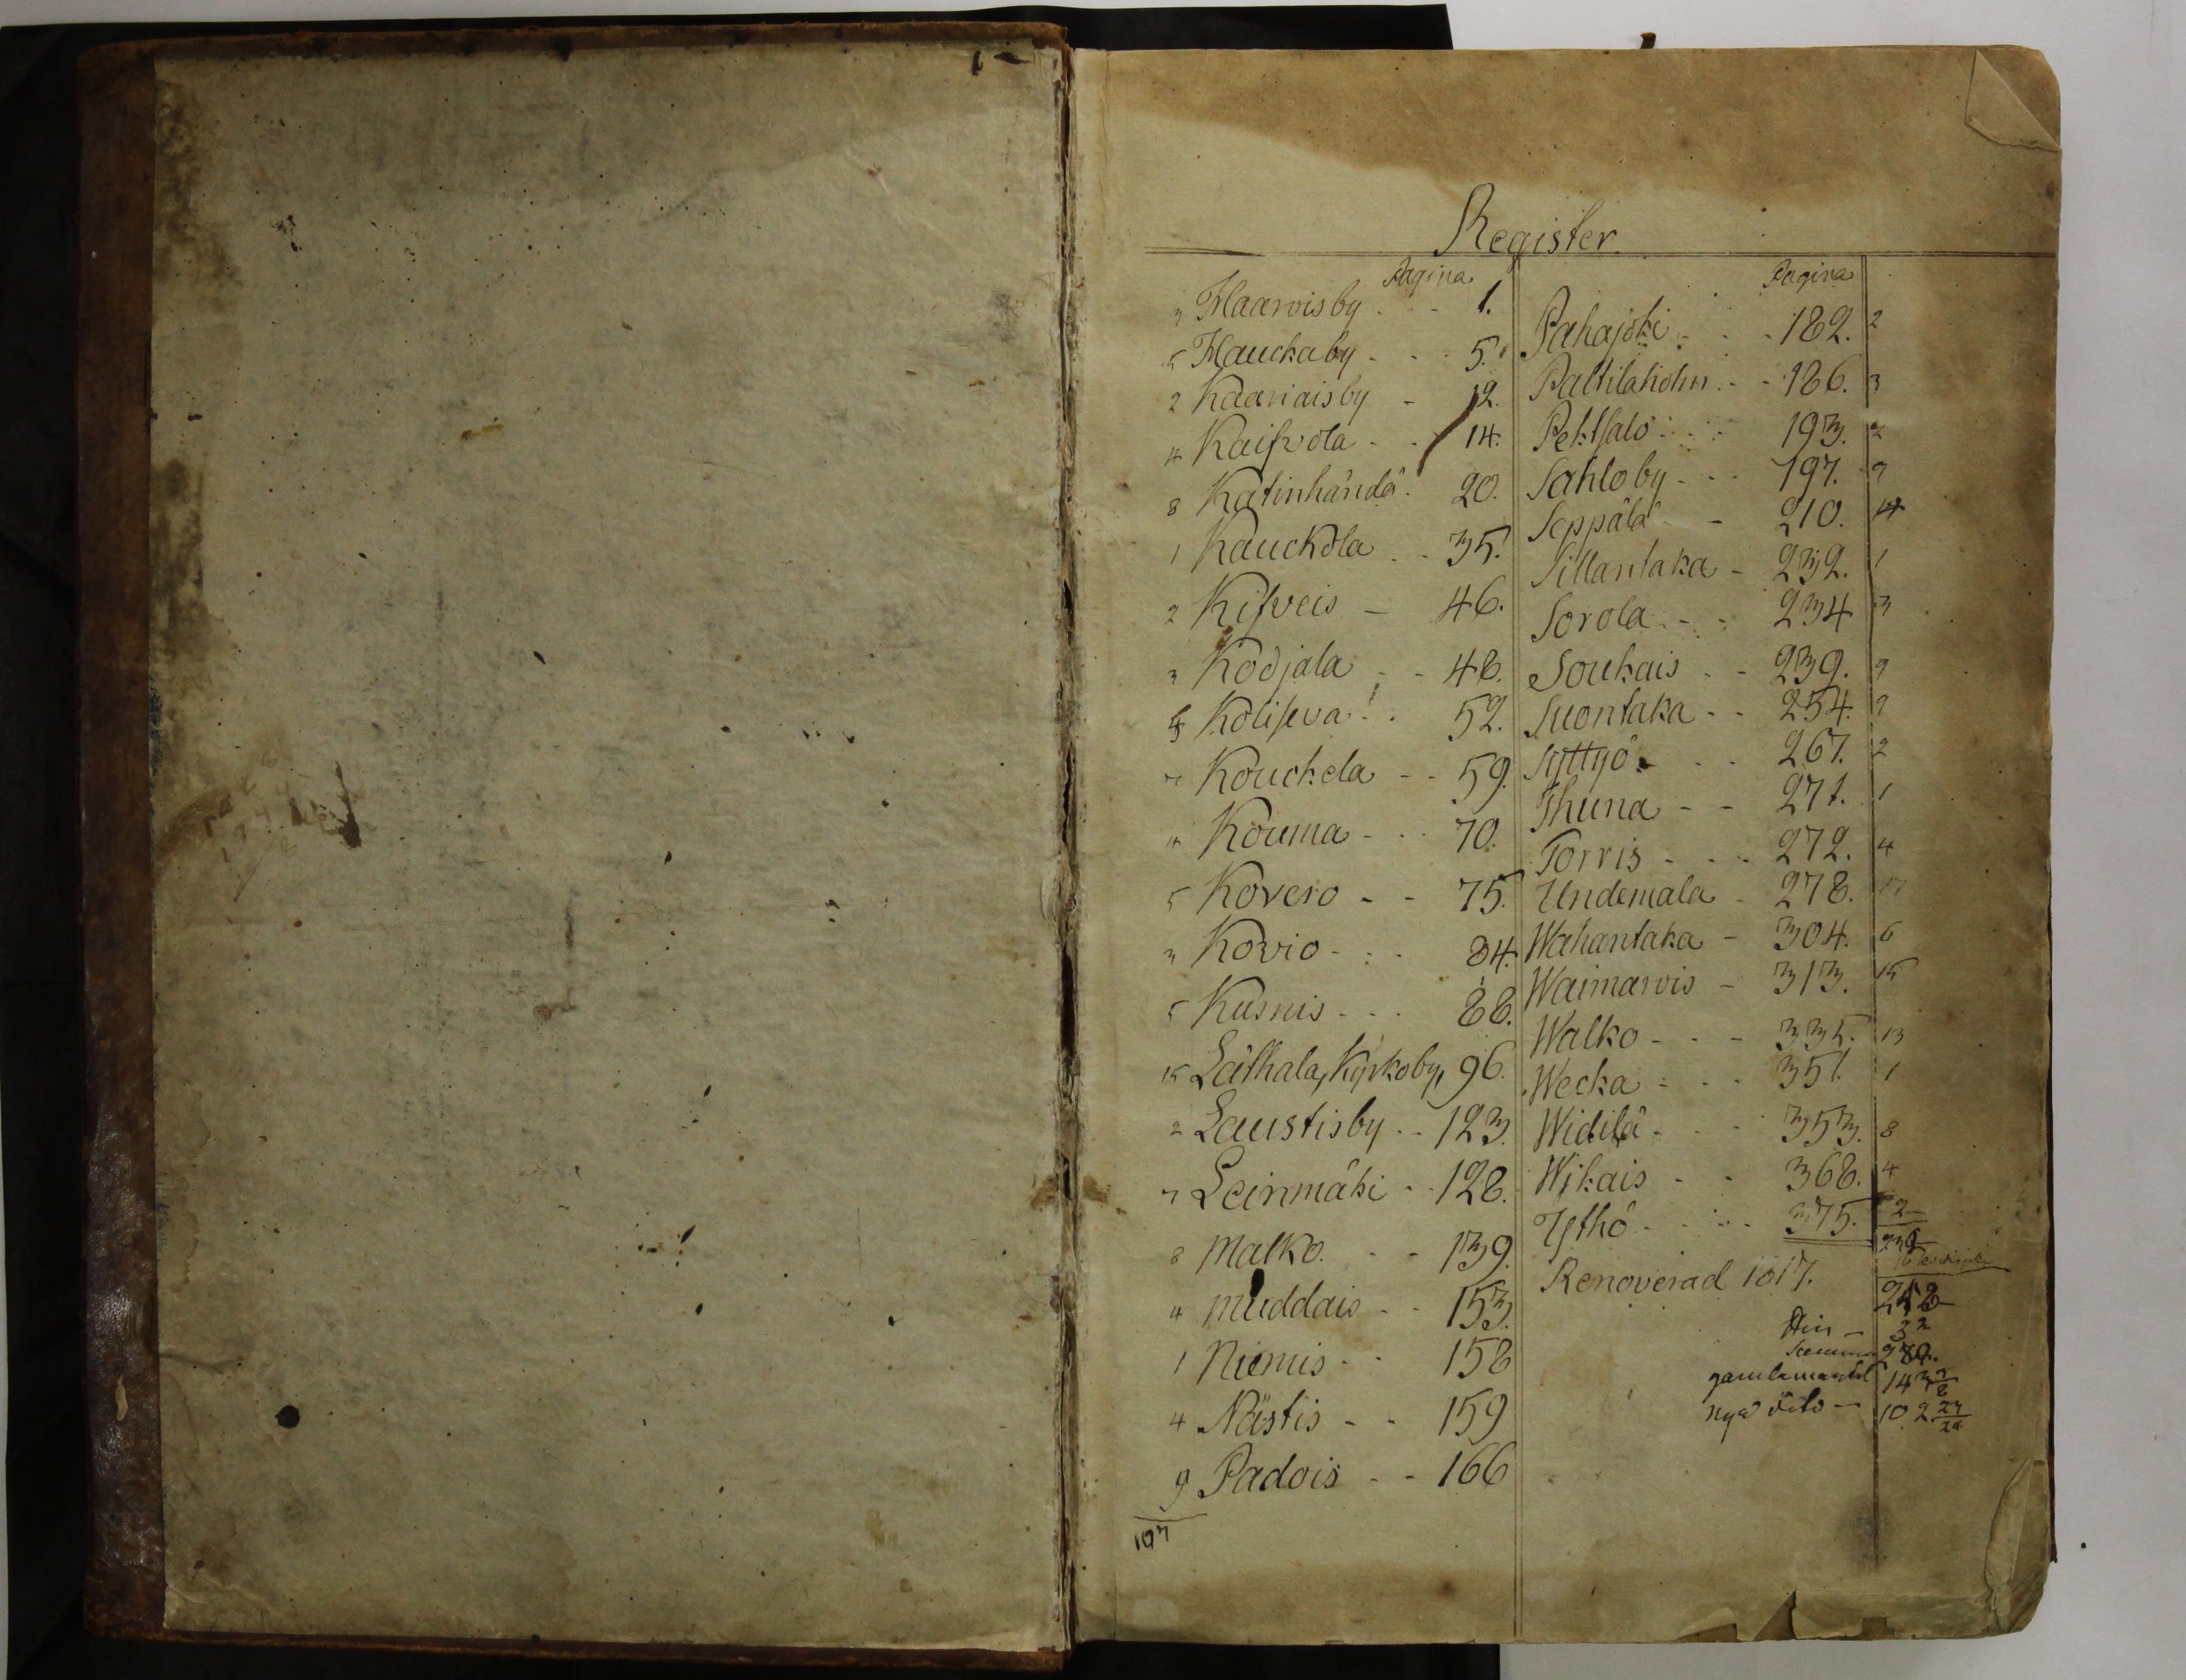 Register
Pagina
3 Haarvisby - - 1.
5 Hauckaby - - - 5.
2 Kaariaisby - 12.
4 Kaifvola - - 14.
8 Katinhändä. 20.
1 Kauckola - - 35.
2 Kifveis - 46.
3 Kodjala - - 48.
Kolifeva - . 52.
Kouckela - - 59.
4 Kouma - - - 70.
5 Kovero - - 75.
3 Kovio - - - 84.
5 Kusnis - - - 88.
15 Laihala, Kyrkoby, 96.
2 Laustisby - - 123.
7 Leinmäki - - 128.
8 Malko. - - 139.
4 Muddais - - 153.
1 Niemis - - 158
4 Nästis - - 159
9 Padois - - 166
107
Pagina
Pahajoki - - - 182. 2
Paltilaholm - - 186. 3
Pektsalo - - - 193. 2
Sahloby - - - 197. 9
Seppälä - - 210. 14
Sillantaka - 232. 1
Sorola - - - 234 3
Soukais - - 239. 9
Suontaka - - 254. 9
Syttyö - - - 267. 2
Thuna - - 271. 1
Torris - - - 272. 4
Undemala - 278. 17
Wahantaka - 304. 6
Waimarvis - 313. 15
Walko - - - 335. 13
Wecka - - - 351. 1
Widilä - - - 353. 8
Wikais - - 368. 4
Ythö - - - - 375. 2
Renoverad 1817.
gamla mantal 143 7/8
nya dito - 102 23/24